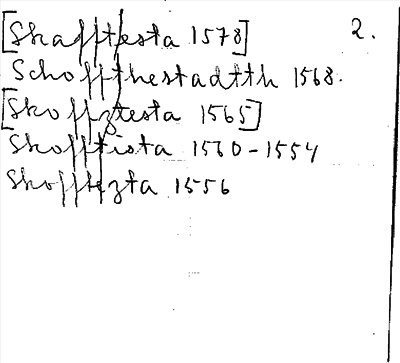 [Skafftesta 1578] 2.
Schoffthestadtth 1568.
[Skoffztesta 1565]
Skofftista 1560-1554
Skofftezta 1556